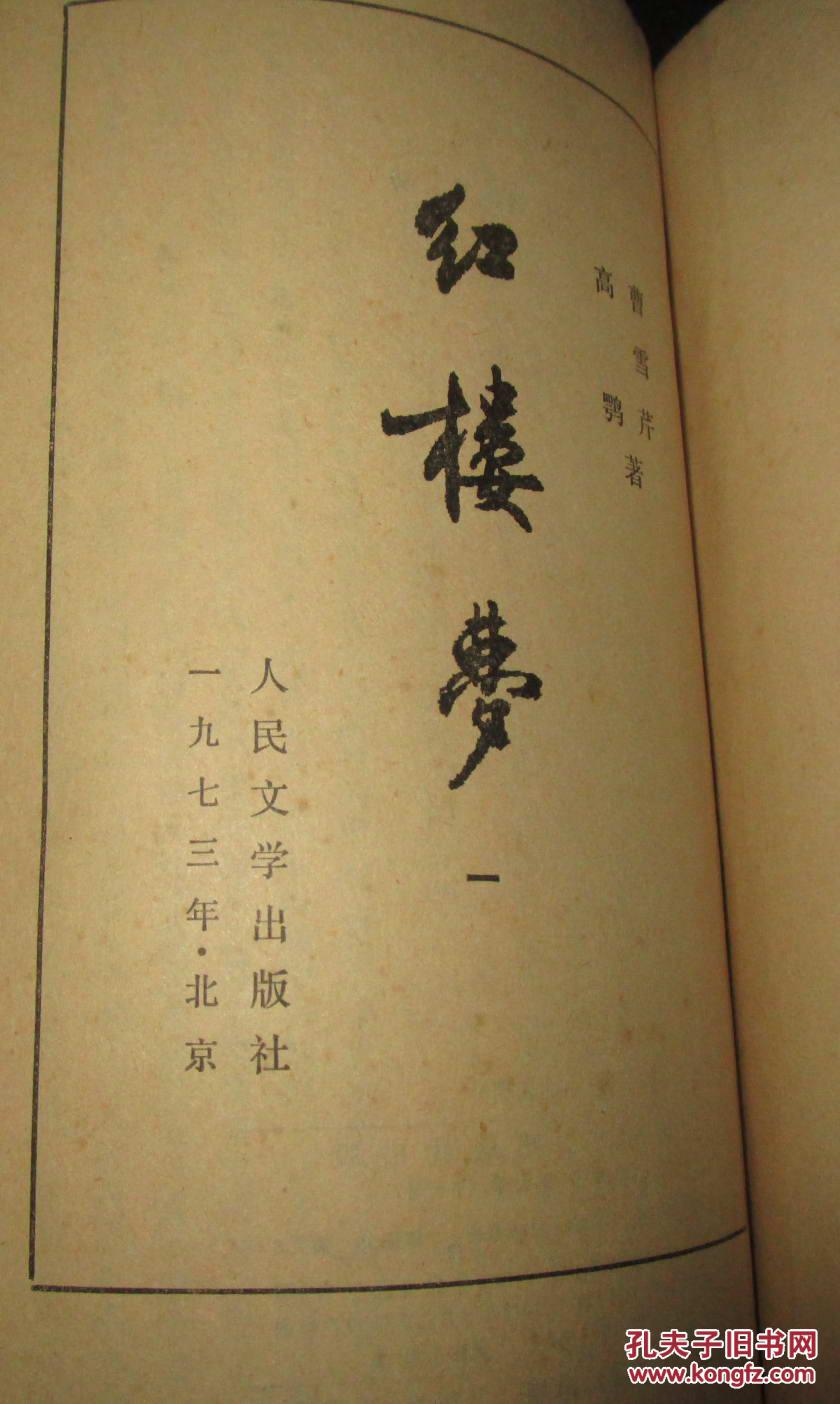 曹雪芹
高鹗著
红楼梦
一
人民文学出版社
一九七三年·北京
孔夫子旧书网
www.kongfz.com